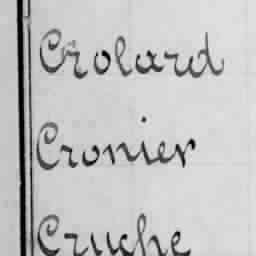 Crolard
Cronier
Cruche